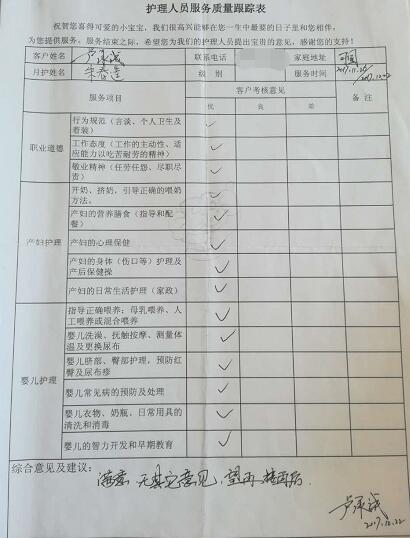 护理人员服务质量跟踪表
祝贺您喜得可爱的小宝宝，我们很高兴能够在您一生中最要的日子里和您相伴，
为您提供服务，服务结束之际，希望您为我们的护理人员提出宝贵的意见，感谢您的支持！
客户姓名 卢承诚 联系电话 家庭地址
月护姓名 级别 服务时间 2017.11.26 2017.12.22
服务项目 客户考核意见 备注
优 良 差
职业道德
行为规范（言谈、个人卫生及
着装） ✓
工作态度（工作的主动性、适
应能力以吃苦耐劳的精神） ✓
敬业精神（任劳任怨、尽职尽
责） ✓
产妇护理
开奶、挤奶，引导正确的喂奶
方法。 ✓
产妇的营养膳食（指导和配
餐） ✓
产妇的心理保健 ✓
产妇的身体（伤口等）护理及
产后保健操 ✓
产妇的日常生活护理（家政） ✓
婴儿护理
指导正确喂养：母乳喂养、人
工喂养或混合喂养 ✓
婴儿洗澡、抚触按摩、测量体
温及更换尿布 ✓
婴儿脐部、臀部护理，预防红
臀及尿布疹 ✓
婴儿常见病的预防及处理 ✓
婴儿衣物、奶瓶，日常用具的
清洗和消毒 ✓
婴儿的智力开发和早期教育 ✓
综合意见及建议：
满意 无其它意见，望再接再厉.
卢承诚
2017.12.22